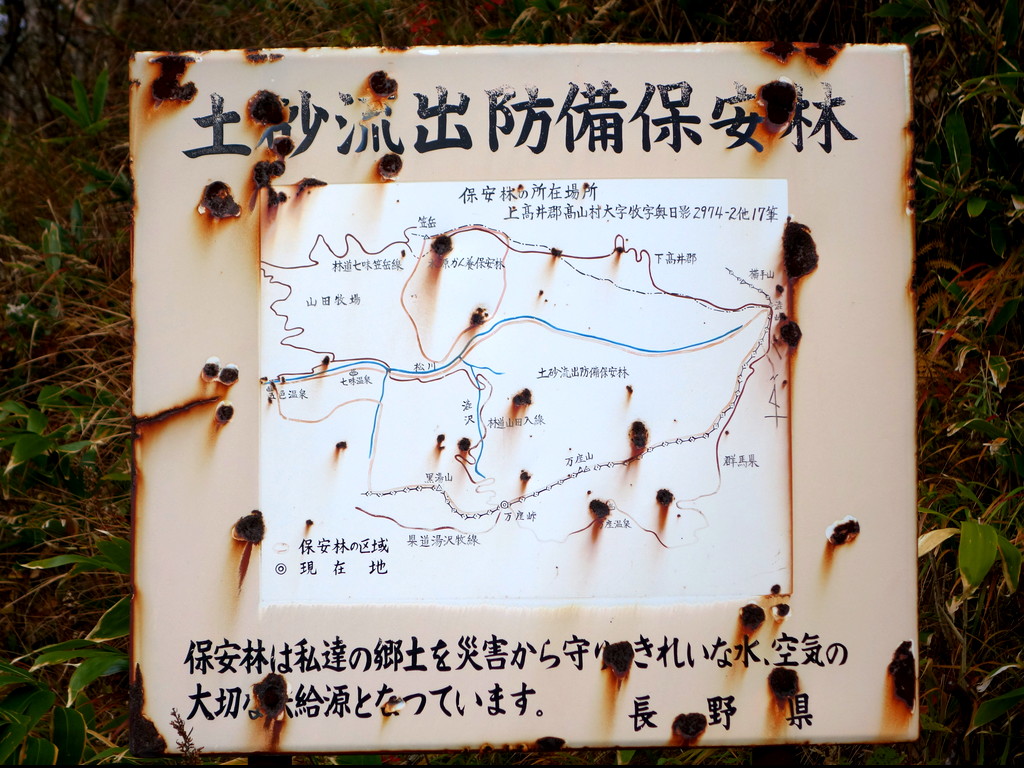 土砂流出防備保安林
保安林の所在場所
上高井郡高山村大字牧字奥日影2974-2他17筆
笠岳
林道七味笠岳線
かん養保安林
下高井郡
山田牧場
松川
七味温泉
色温泉
土砂流出防備保安林
林道山田入線
群馬県
万座山
黒湯山
万座峠
座温泉
県道湯沢牧線
保安林の区域
◎ 現在地
保安林は私達の郷土を災害から守り きれいな水、空気の
大切な 給源となっています。
長野県